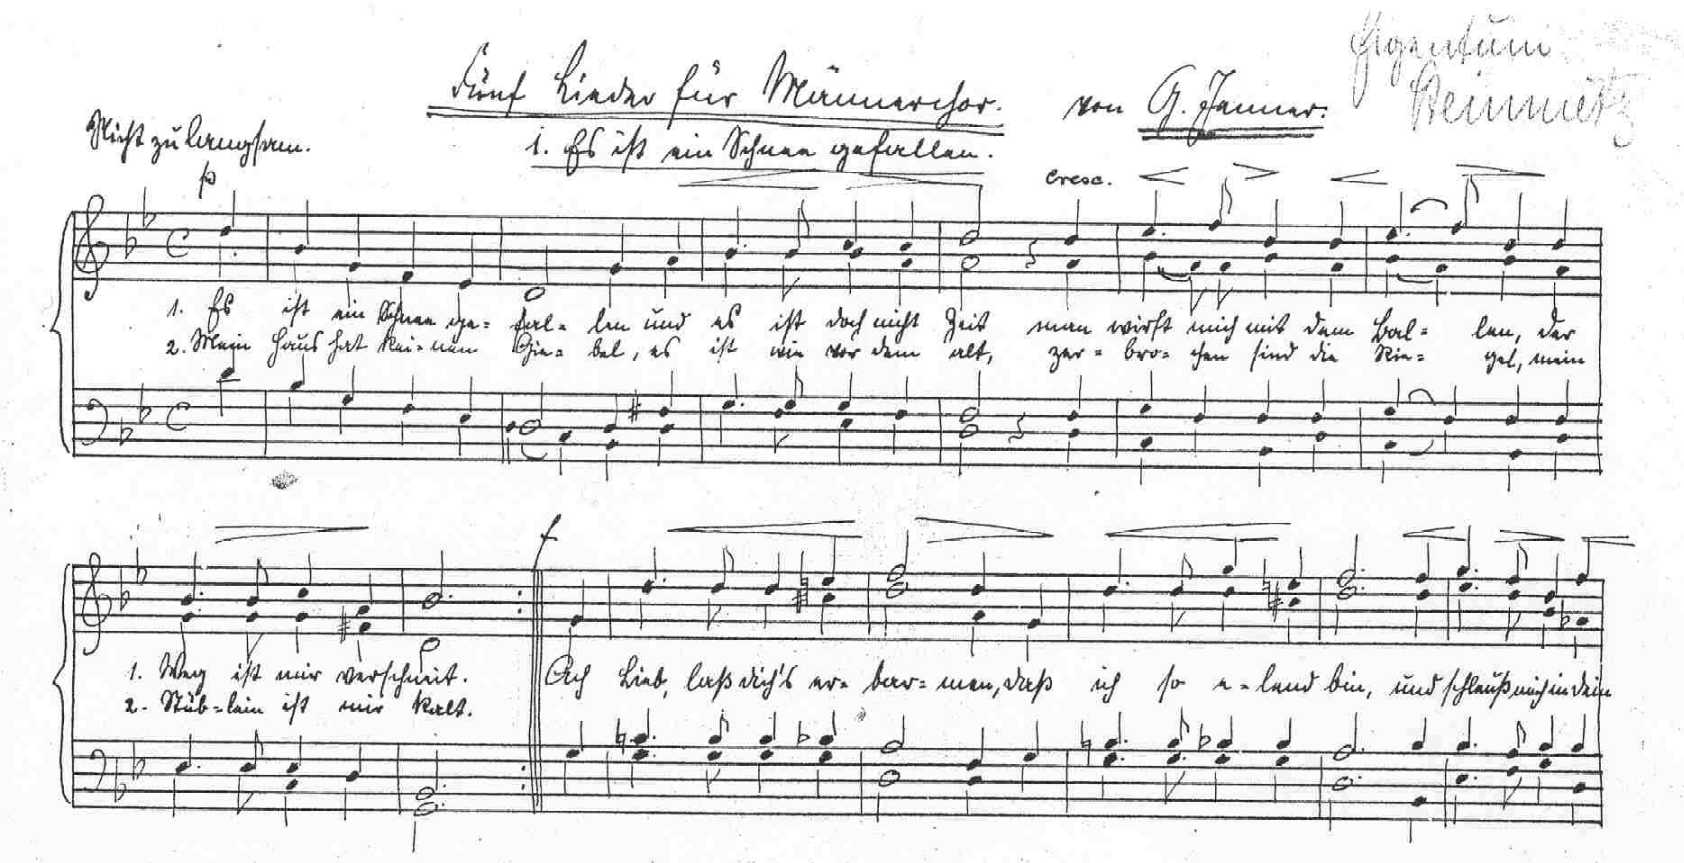 Eigentum
Steinmetz
Fünf Lieder für Männerchor. von G. Jenner.
Nicht zu langsam.
1. Es ist ein Schnee gefallen.
p cresc.
1. Es ist ein Schnee ge- fal- len und es ist doch nicht Zeit man wirft mich mit dem Bal- len, der
2. Mein Haus hat kei- nen Gie- bel, es ist mir vor dem alt, zer- bro- chen sind die Rie- gel, mein
f
1. Weg ist mir verschneit. Ach Lieb, laß dich's er- bar- men, daß ich so e- lend bin, und schleuß mich in dein
2. Stüb- lein ist mir kalt.